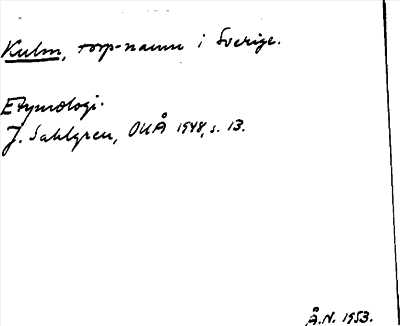 Kulm, torp-namn i Sverige.
Etymologi.
J. Sahlgren, OUÅ 1948, s. 13.
Å.N. 1953.